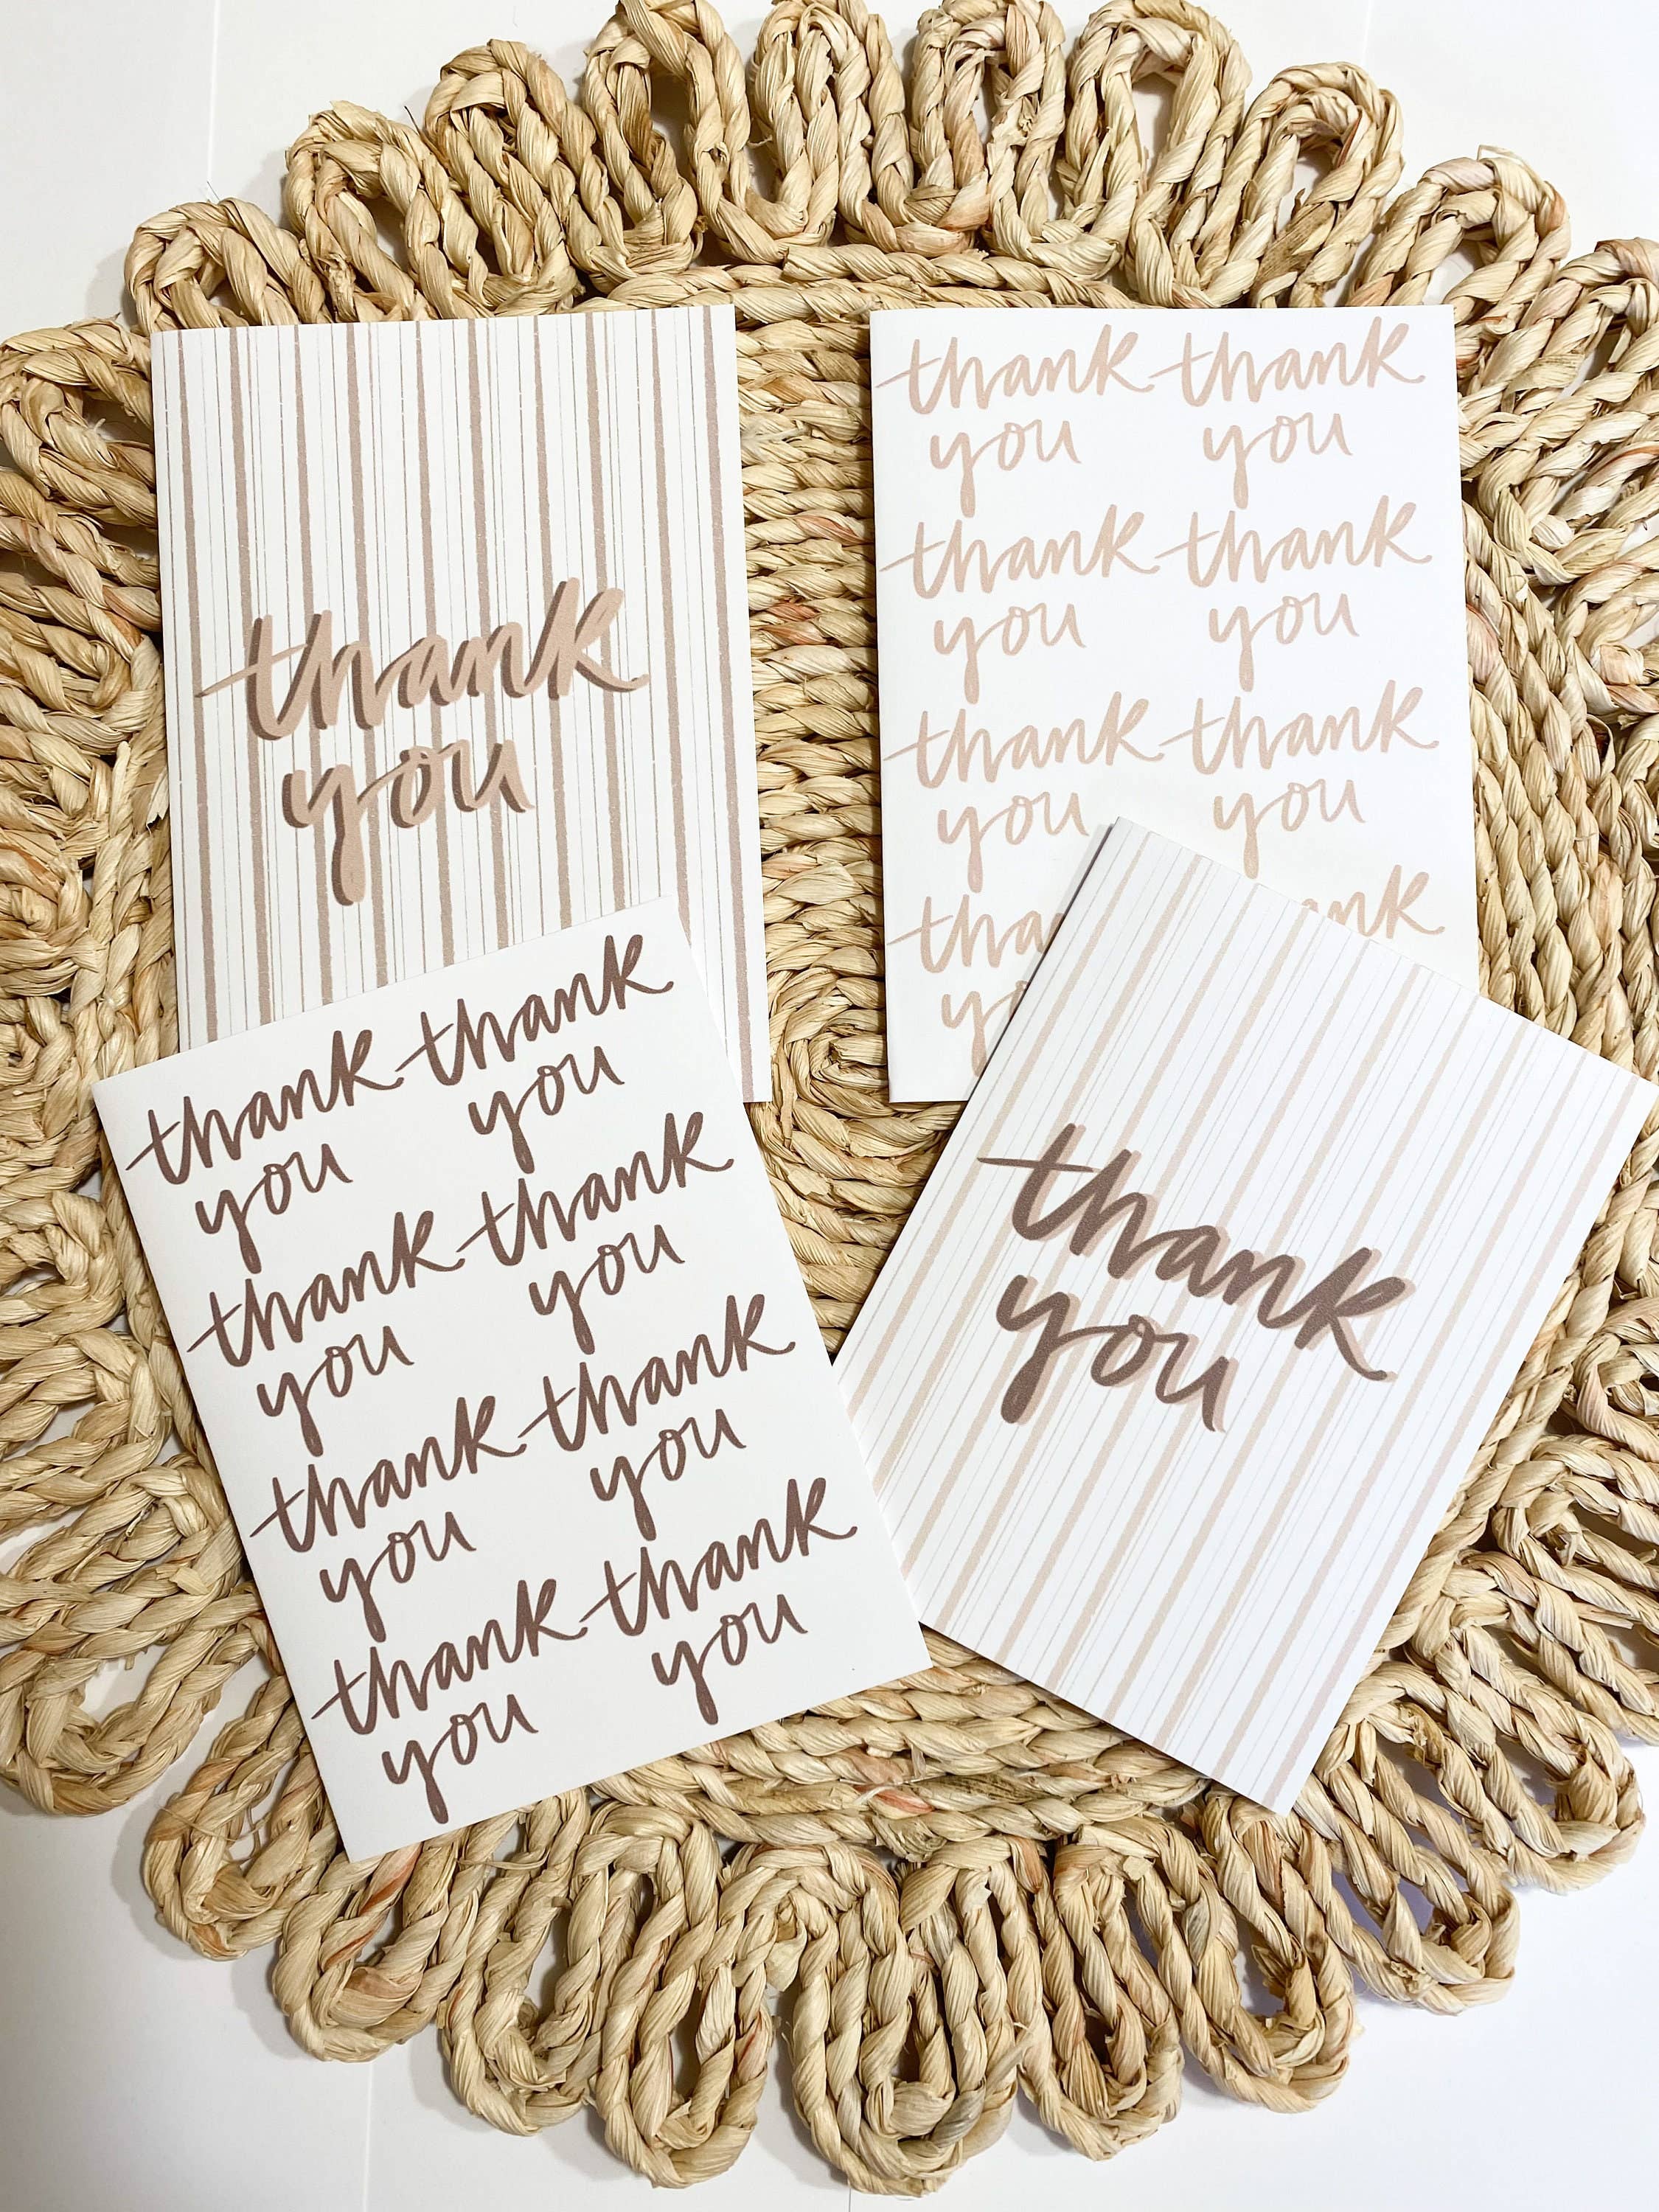 thank
you
thank thank
you you
thank thank
you you
thank thank
you you
tha nk
yo
thank thank
you you
thank thank
you you
thank thank
you you
thank thank
you you
thank
you